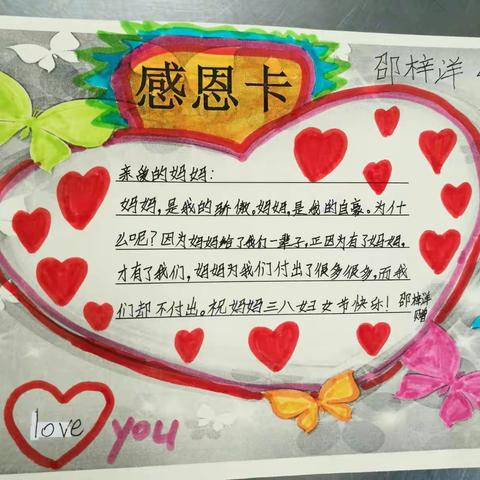 感恩卡
邵梓洋
亲爱的妈妈:
妈妈,是我的骄傲。妈妈,是我的自豪。为什
么呢?因为妈妈给了我们一辈子,正因为有了妈妈,
才有了我们,妈妈为我们付出了很多很多,而我
们却不付出。祝妈妈三八妇女节快乐!邵梓洋
赠
love you